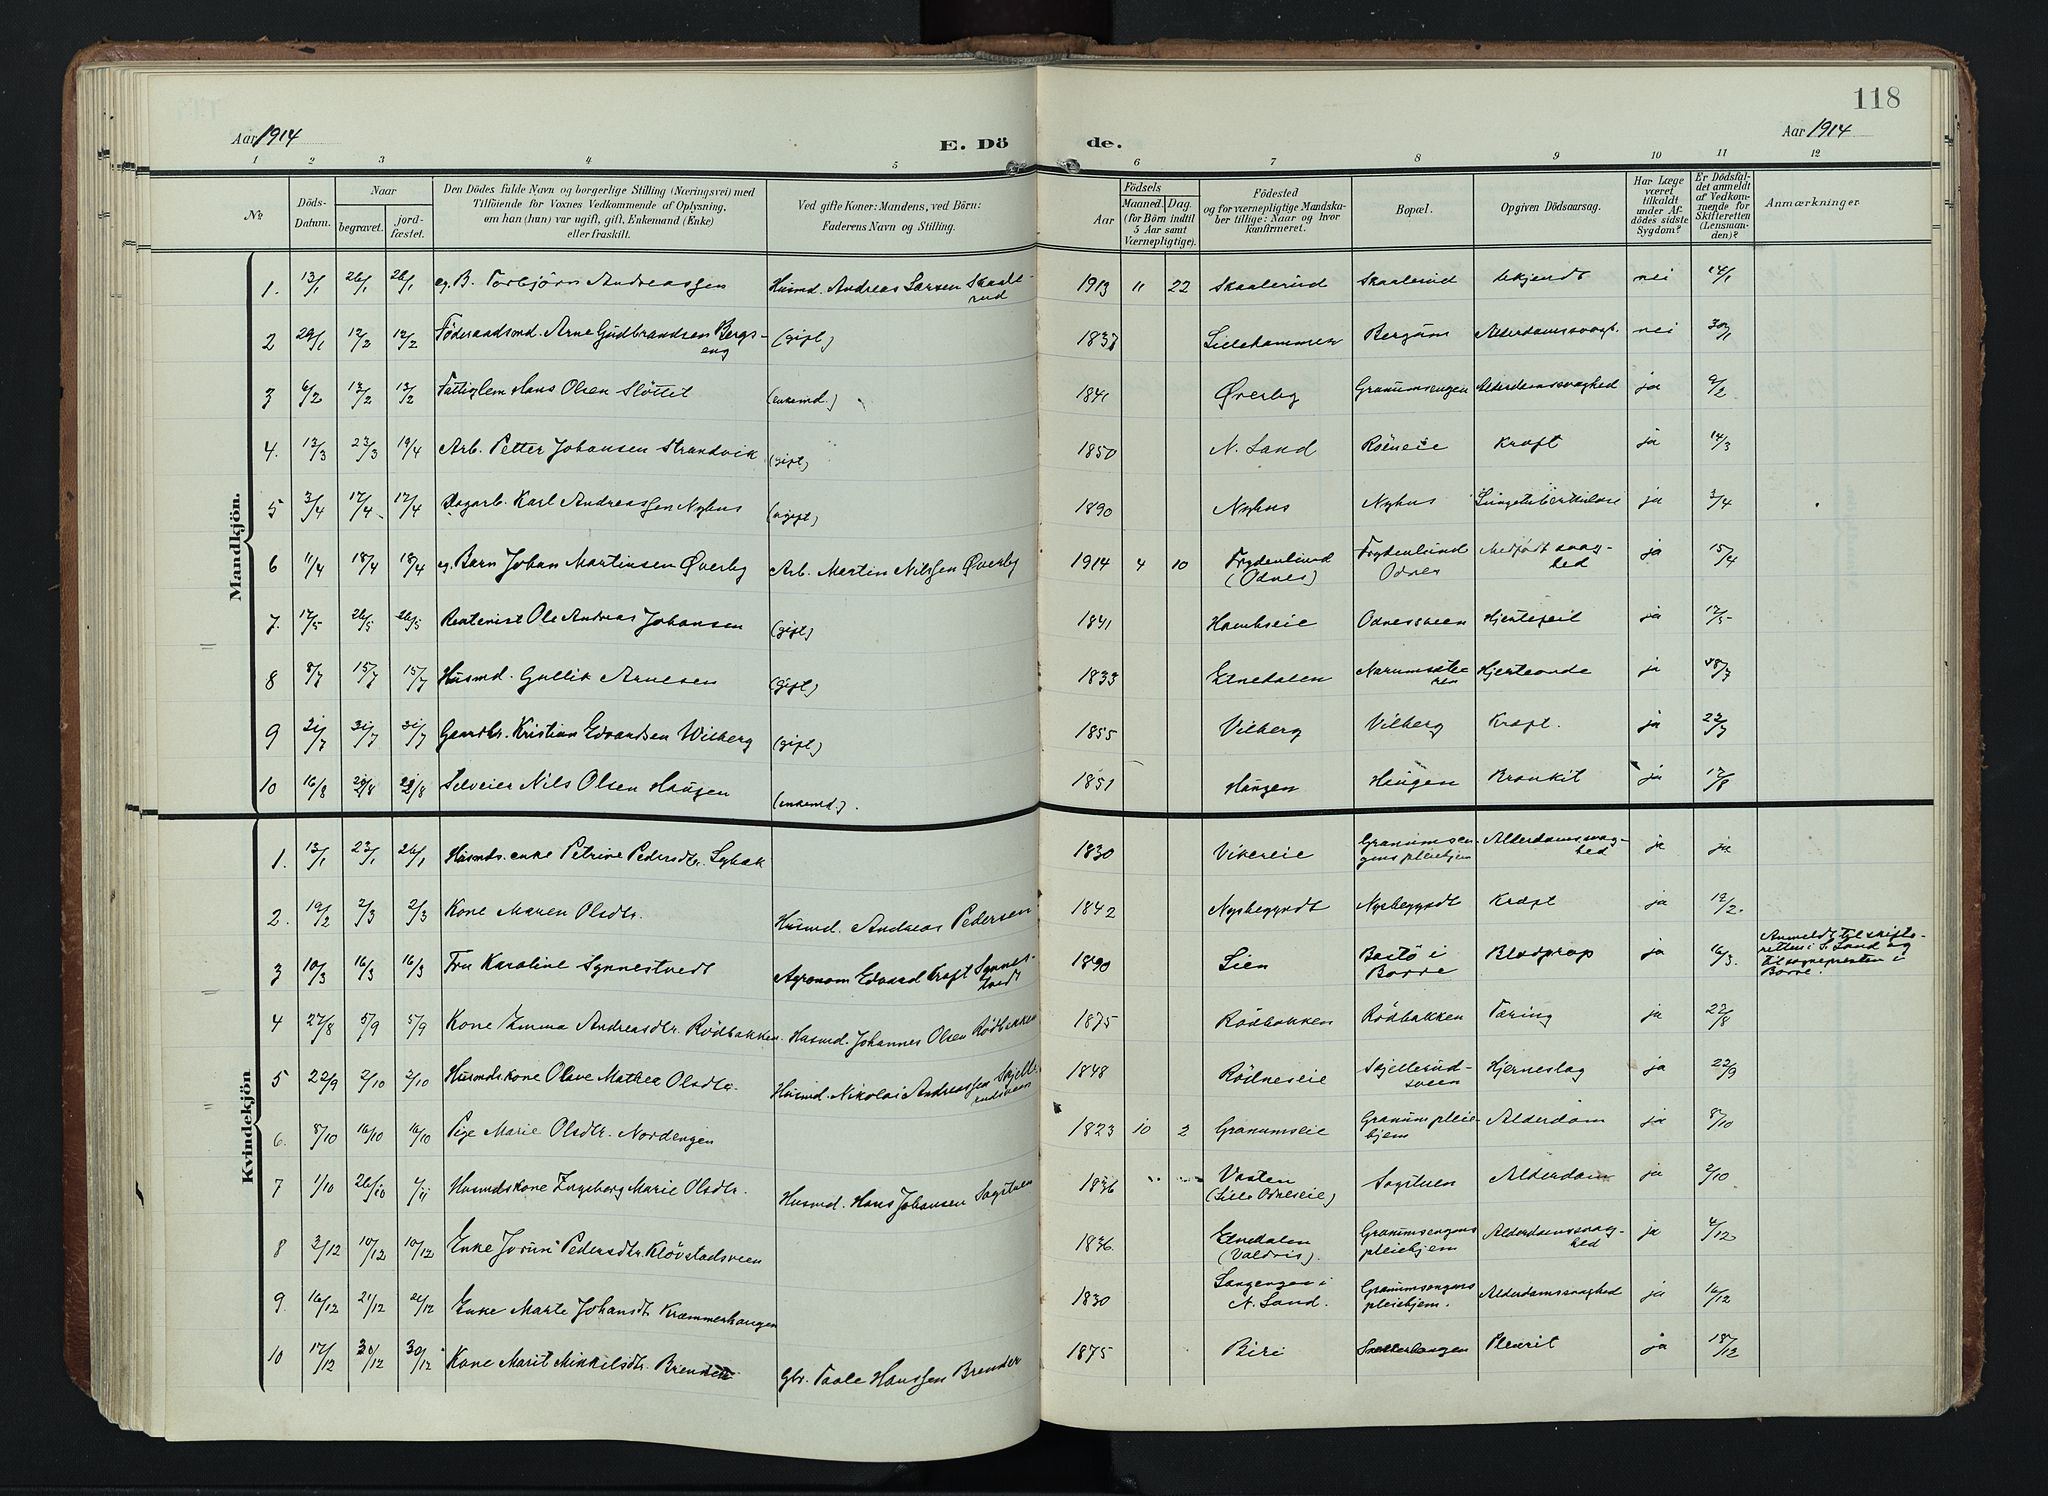 118
Aar 1914 E. Dö de. Aar 1914
1 2 3 4 5 6 7 8 9 10 11 12
№
Döds-Datum.
Naar begravet. jordfæstet.
Den Dödes fulde Navn og borgerlige Stilling (Næringsvei) med Tilföiende for Voxnes Vedkommende af Oplysning, om han (hun) var ugift, gift, Enkemand (Enke) eller fraskilt.
Ved gifte Koner: Mandens, ved Börn: Faderens Navn og Stilling.
Födsels Aar Maaned. Dag. (for Börn indtil 5 Aar samt Værnepligtige).
Födested og for værnepligtige Mandskaber tillige: Naar og hvor konfirmeret.
Bopæl.
Opgiven Dödsaarsag.
Har Læge været tilkaldt under Afdödes sidste Sygdom?
Er Dödsfaldet anmeldt af Vedkommende for Skifteretten (Lensmanden)?
Anmærkninger.
Mandkjön.
1. 13/1 26/1 26/1 eg. B. Torbjörn Andreassen Husmd. Andreas Larsen Skaalerud 1913 11 22 Skaalerud Skaalerud Ukjendt nei 14/1
2 29/1 12/2 12/2 Föderaadsmd. Arne Gudbrandsen Bergseng (gift) 1837 Lillehammer Bergum Alderdomssvagh. nei 30/1
3 6/2 13/2 13/2 Fattiglem Hans Olsen Slöttet (enkemd.) 1841 Øverby Granumsengen Alderdomssvaghed ja 9/2
4. 13/3 23/3 19/4 Arb. Petter Johansen Strandvik (gift) 1850 N. Land Röineie Kræft ja 14/3
5 3/4 17/4 17/4 Dagarb. Karl Andreassen Nyhus (ugift) 1890 Nyhus Nyhus Lungetuberkulose ja 3/4
6 11/4 18/4 18/4 eg. Barn Johan Martinsen Øverby Arb. Martin Nilssen Øverby 1914 4 10 Frydenlund (Odnes) Frydenlund Odnes Medfödt svaghed ja 15/4
7. 17/5 26/5 26/5 Rentenist Ole Andreas Johansen (gift) 1841 Hambseie Odnessveen Hjertefeil ja 17/5
8 8/7 15/7 15/7 Husmd. Gullik Arnesen (gift) 1833 Etnedalen Narumsæteren Hjerteonde ja 8/7
9 21/7 31/7 31/7 Gaardbr. Kristian Edvardsen Wilberg (gift) 1855 Vilberg Vilberg Kræft. ja 22/7
10 16/8 21/8 21/8 Selveier Nils Olsen Haugen (enkemd.) 1851 Haugen Haugen Bronkit ja 17/8
Kvindekjön
1. 13/1 23/1 26/1 Husmds. enke Petrine Pedersdtr. Lybæk 1830 Vikereie Granumsengens pleiehjem Alderdomssvaghed ja ja
2. 19/2 2/3 2/3 Kone Maren Olsdtr. Husmd. Andreas Pedersen 1842 Nysbeggndt Nysbeggndt Kræft ja 19/2.
3 10/3 16/3 16/3 Fru Karoline Synnestvedt Agronom Edvard Kraft Synnestvedt 1890 Lien Bastö i Borre Blodprop ja 16/3. Anmeldt til skifteretten i S. Land og til sognepresten i Borre.
4 27/8 5/9 5/9 Kone Emma Andreasdtr. Rödbakken. Husmd. Johannes Olsen Rödbakken 1875 Rödbakken Rödbakken Tæring ja 22/8
5 22/9 2/10 2/10 Husmdskone Olave Mathea Olsdtr. Husmd. Nikolai Andreassen Skjellerudsveen 1848 Rödneseie Skjellerudsveen Hjerneslag ja 22/9
6. 8/10 16/10 16/10 Pige Marie Olsdtr. Nordengen 1823 10 2 Granumseie Granum pleiehjem Alderdom ja 8/10
7 1/10 26/10 1/11 Husmdskone Ingeborg Marie Olsdtr. Husmd. Hans Johansen Sagstuen 1836 Vasten (Lille Odneseie) Sagstuen Alderdom ja 2/10
8 3/12 10/12 10/12 Enke Jorun Pedersdtr. Klövstadsveen 1836. Etnedalen (Valdris). Granumsengens pleiehjem Alderdomssvaghed ja 4/12
9. 16/12 21/12 21/12 Enke Marte Johansdtr Kræmmerhaugen 1830 Langengen i N. Land. Granumsengens pleiehjem. Alderdomssvaghed ja 16/12
10 17/12 30/12 30/12 Kone Marit Minkilsdtr. Brenden Gbr. Paale Hanssen Brenden 1875 Biri Snellerhaugen Plevrit ja 18/12